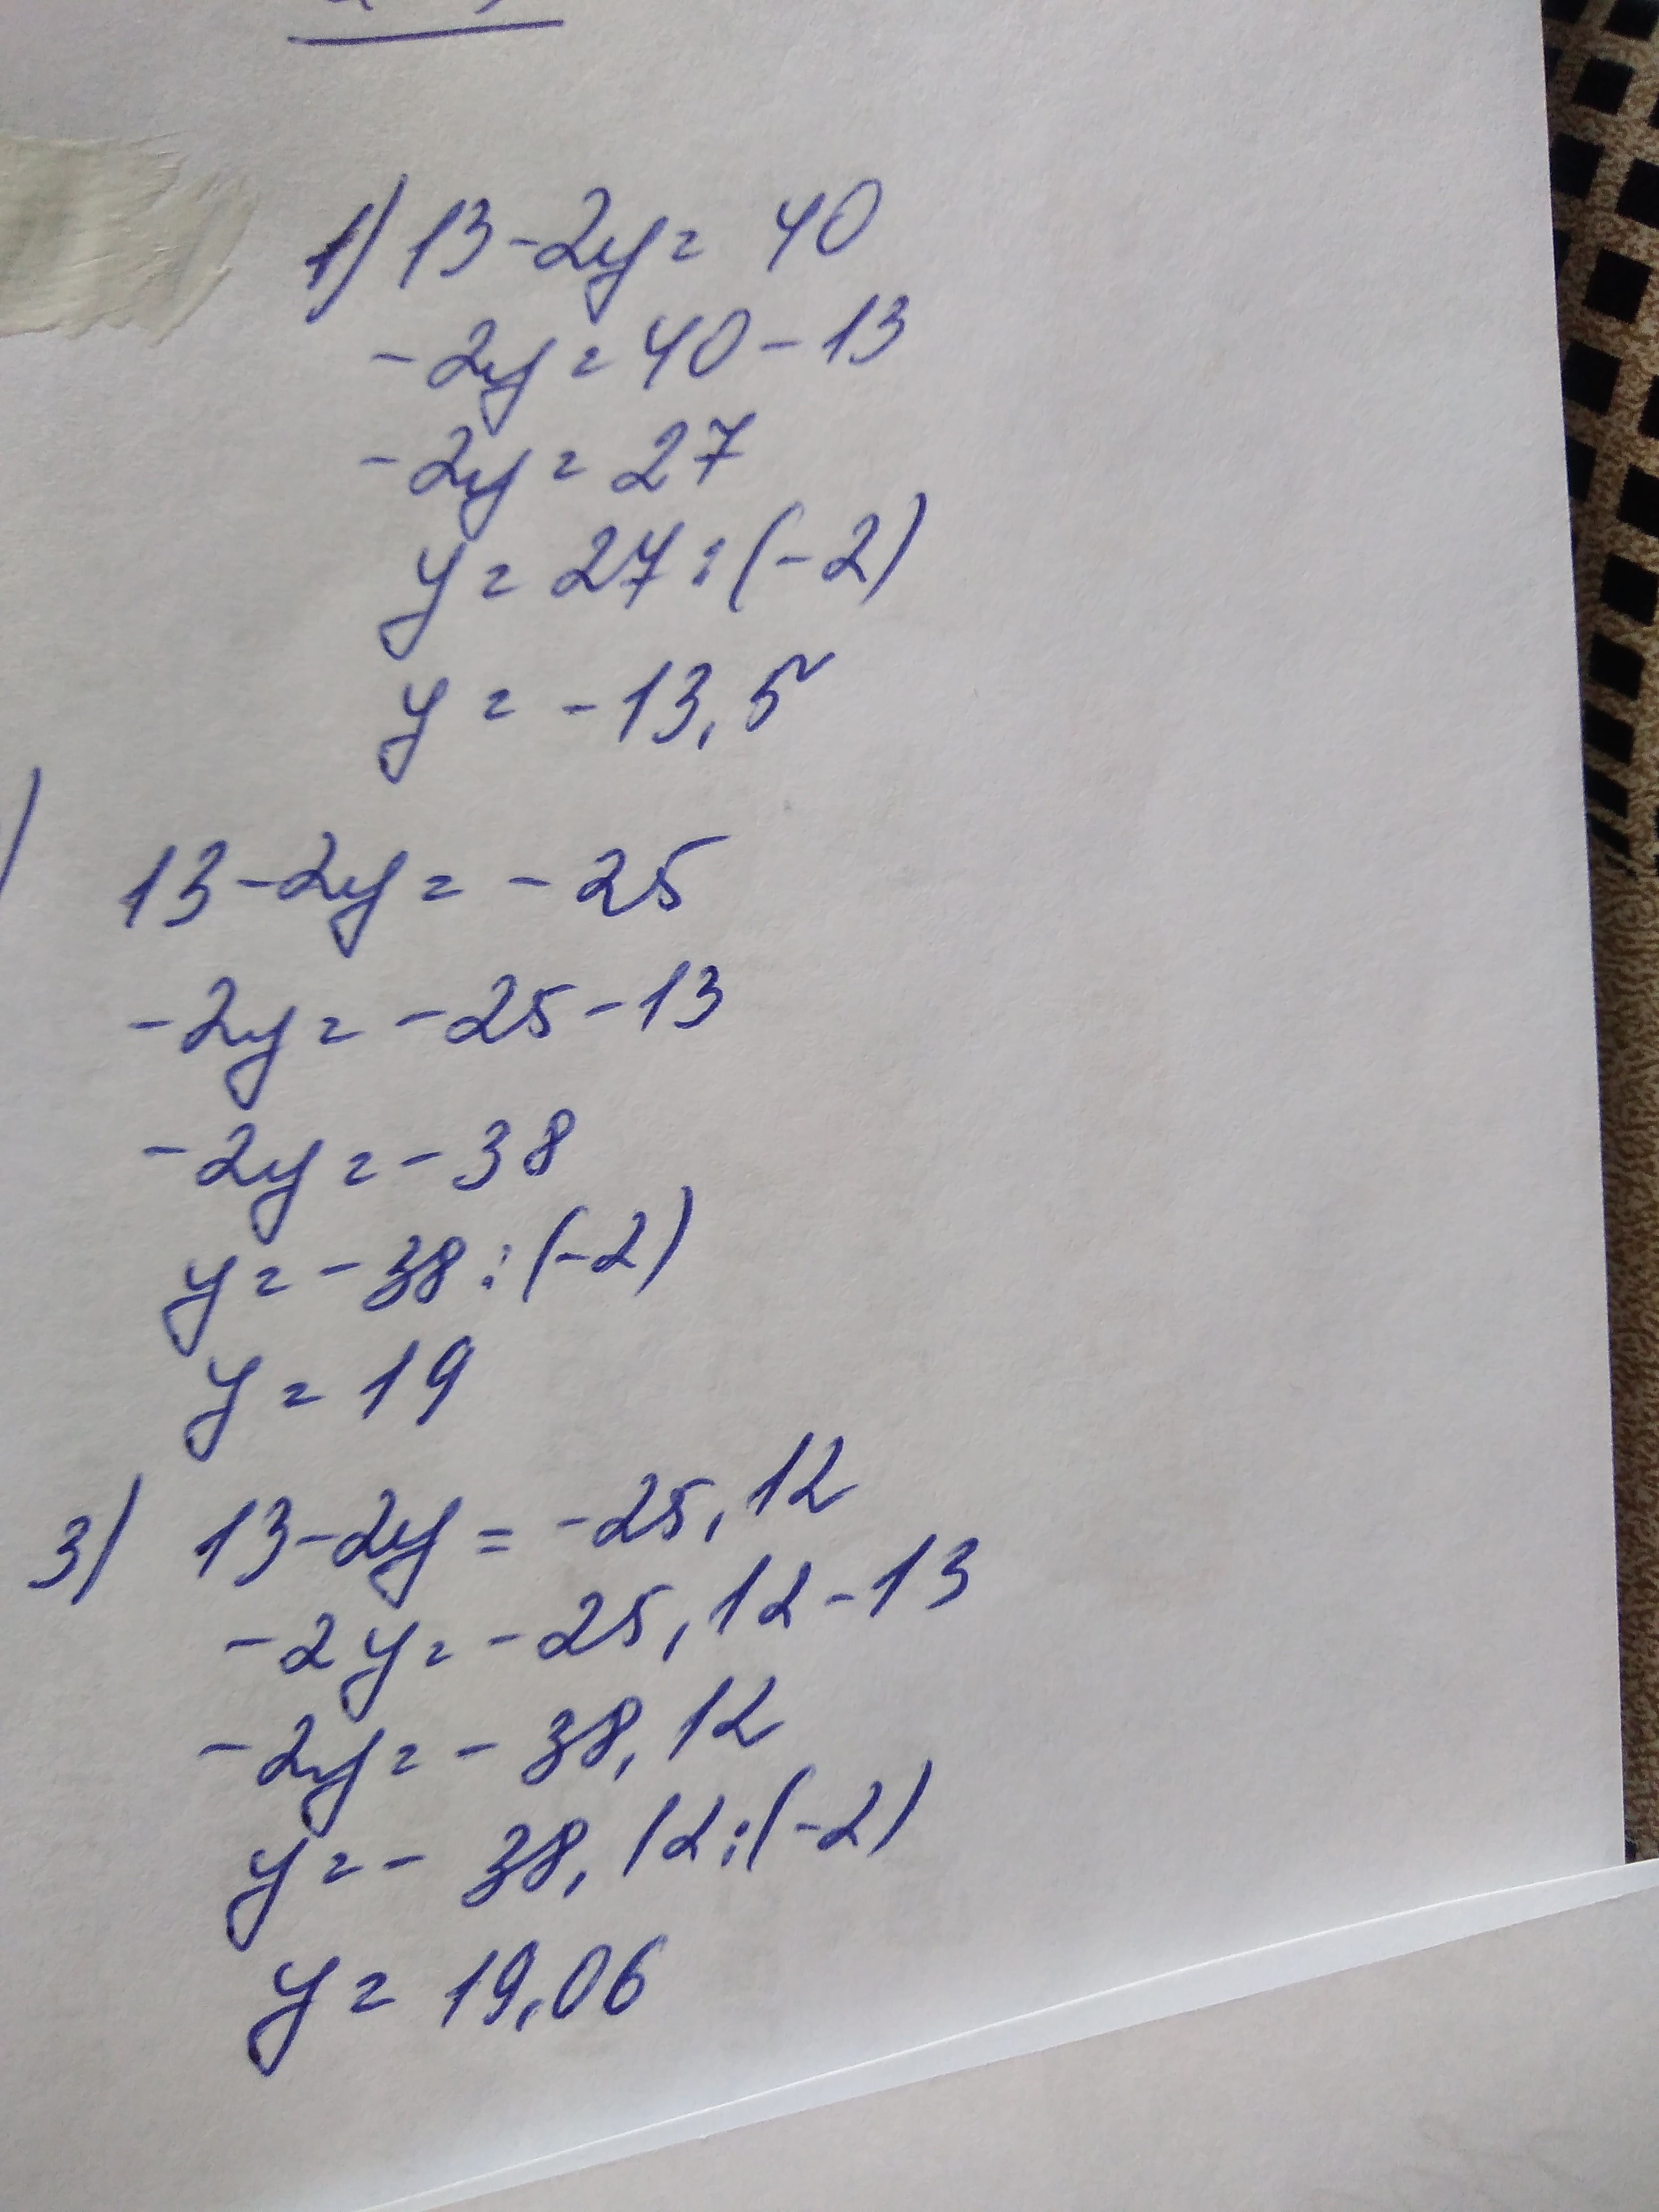 1) 13-2y= 40
-2y=40-13
-2y=27
y=27:(-2)
y=-13,5
) 13-2y=-25
-2y=-25-13
-2y=-38
y=-38:(-2)
y=19
3) 13-2y=-25,12
-2y=-25,12-13
-2y=-38,12
y=-38,12:(-2)
y=19,06